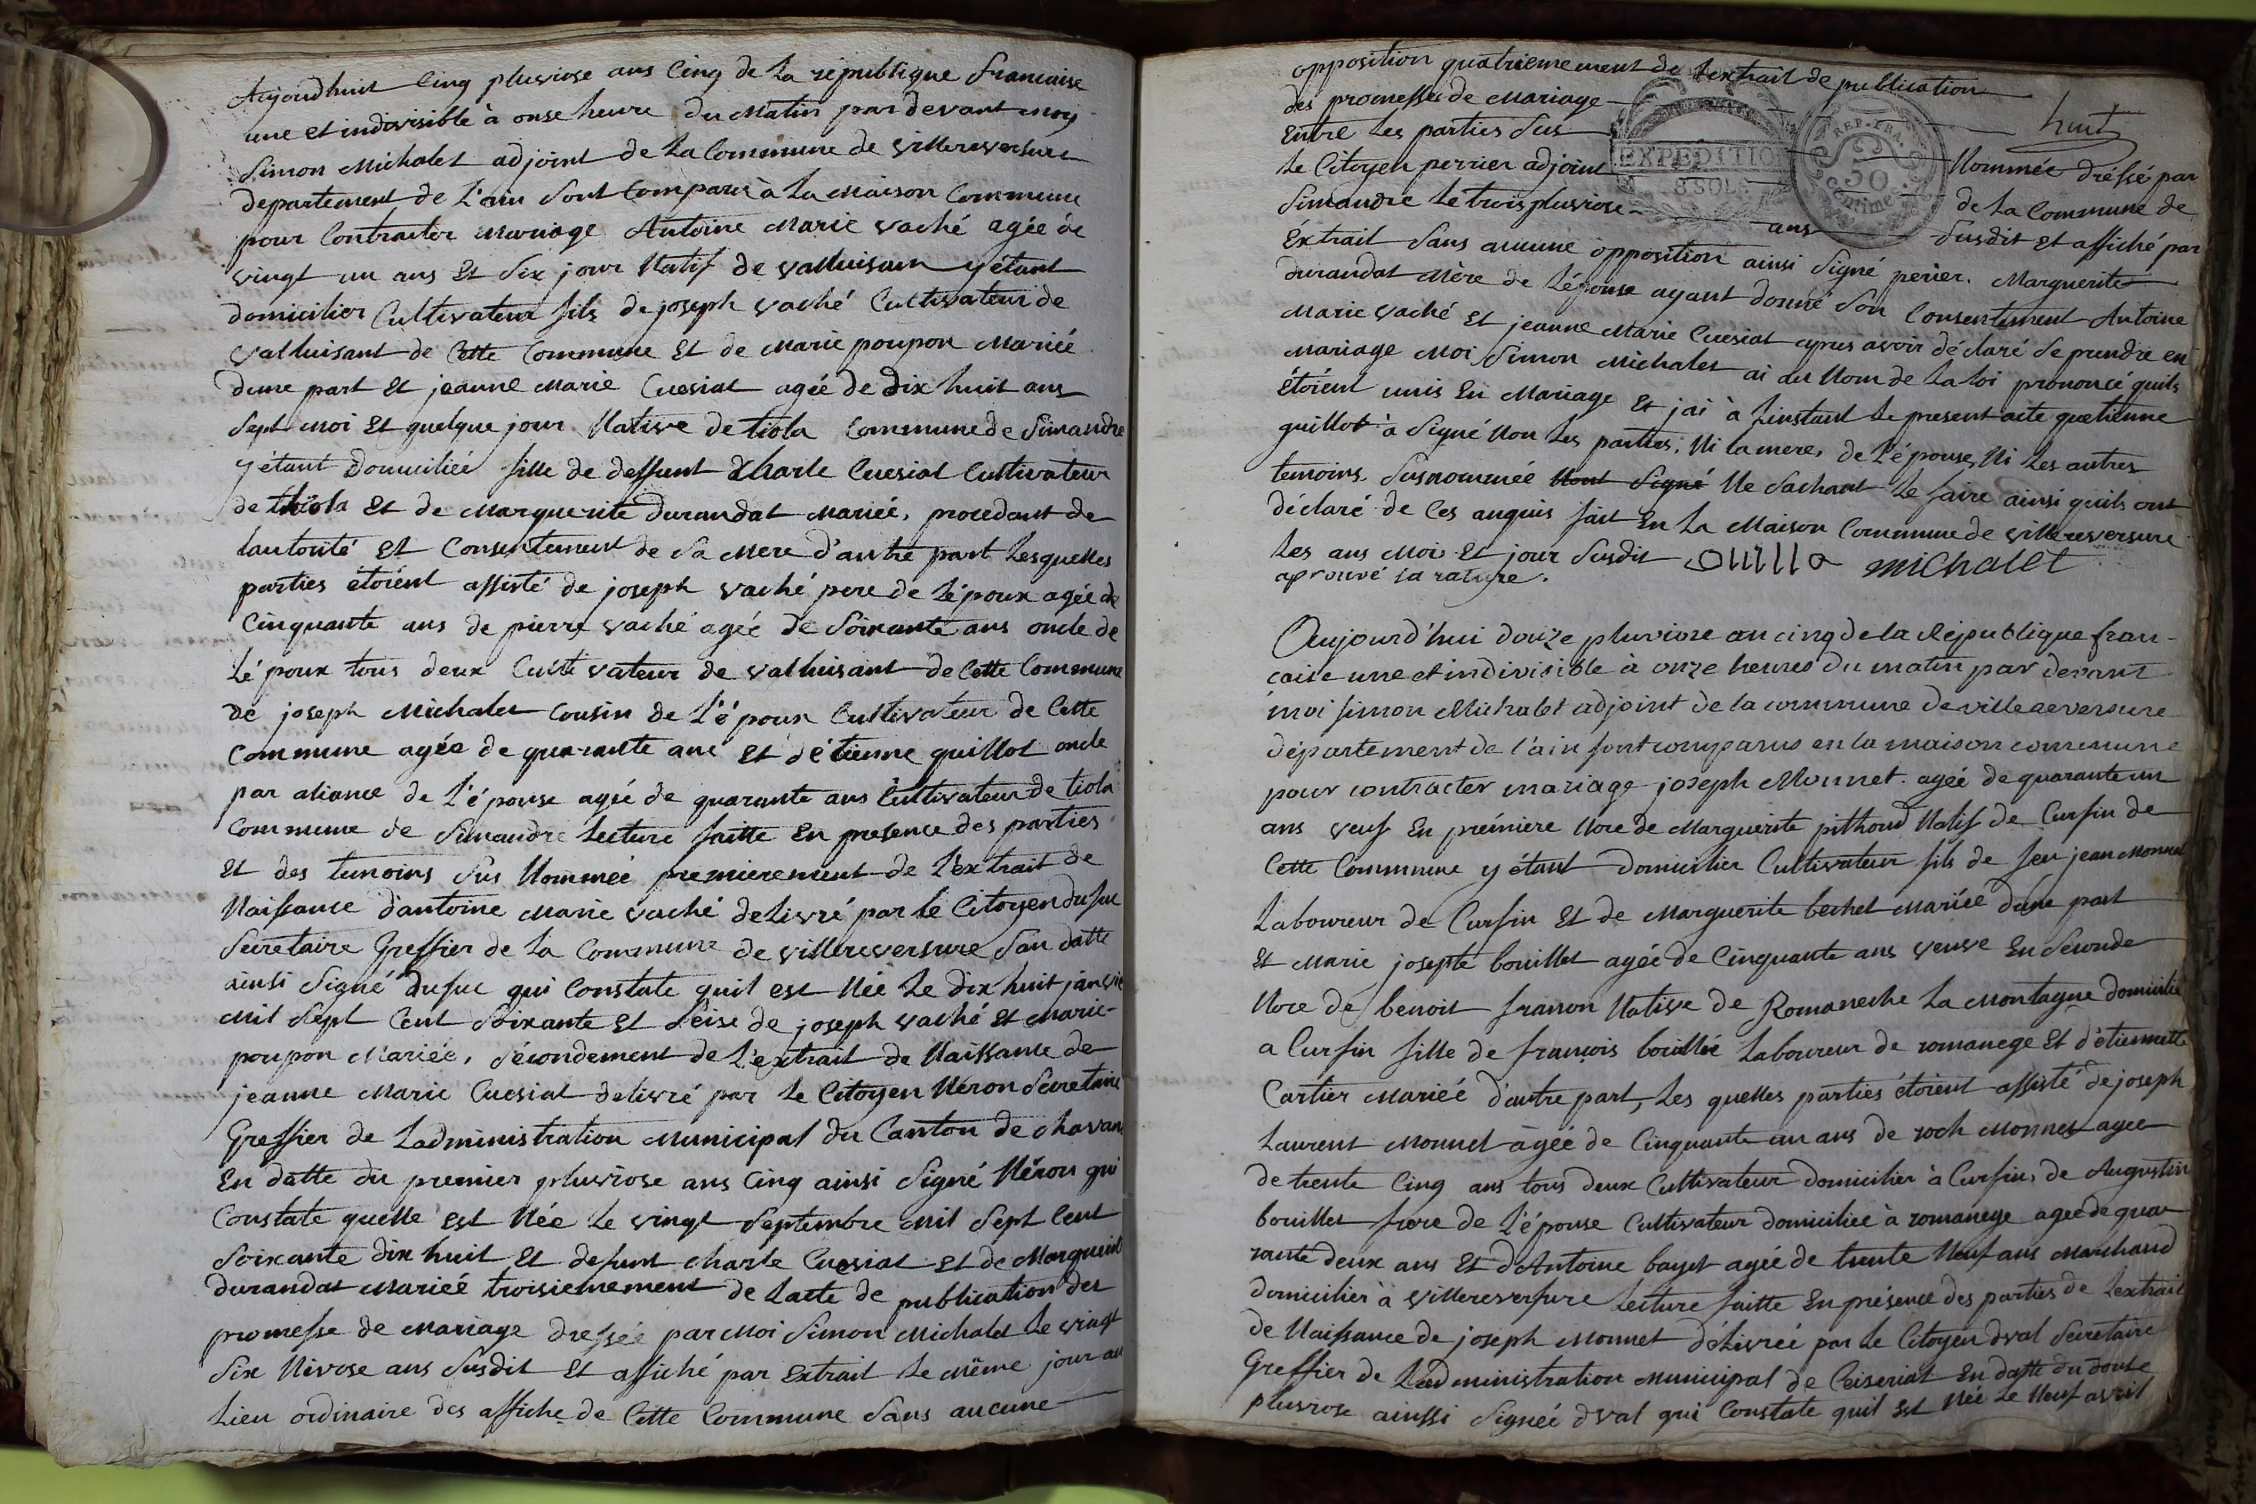 Aujoudhuit Cinq pluviose ans Cinq de La république francaise
une et indivisible à onse heure du Matin par devant moy
Simon Michalet adjoint de La Commune de Villereversure
departement de L'ain sont Comparus à La Maison Commune
pour Contracter Mariage Antoine Marie vaché agée de
vingt un ans Et Six jour Natif de valluisant y étant
domicilier Cultivateur fils de joseph vaché Cultivateur de
valluisant de Cette Commune Et de Marie poupon Mariée
dune part Et jeanne Marie Cuesiat agée de dix huit ans
Sept Moi Et quelque jour Native de tiola Commune de Simandre
y étant domiciliée fille de deffunt Charle Cuesiat Cultivateur
de thiola Et de Marguerite durandat Mariée, procedant de
lautorité Et Consentement de Sa Mere d'autre part Lesquelles
parties étoient assisté de joseph vaché pere de L'époux agée de
Cinquante ans de pierre vaché agée de Soixante ans oncle de
L'époux tous deux Cultivateur de valluisant de Cette Commune
de joseph Michalet Cousin de L'époux Cultivateur de Cette
Commune agée de quarante ans Et d'étienne guillot oncle
par aliance de L'épouse agée de quarante ans Cultivateur de tiola
Commune de Simandre Lecture faitte En presence des parties
Et des temoins sus Nommée premierement de L'extrait de
Naissance d'antoine Marie vaché delivré par Le Citoyen dufuc
Secretaire Greffier de La Commune de villereversure San datte
ainsi Signé dufuc qui Constate quil est Née Le dix huit janvie
Mil Sept Cent Soixante Et Seise de joseph vaché Et Marie
poupon Mariée, Sécondement de L'extrait de Naissance de
jeanne Marie Cuesiat delivré par Le Citoyen Néron Secretaire
Greffier de Ladministration Municipal du Canton de chavan
En datte du premier pluviose ans Cinq ainsi Signé Néron qui
Constate quelle est Née Le vingt Septembre Mil Sept Cent
Soixante dix huit Et defunt Charle Cuesiat Et de Marguerite
durandat Mariée troisiemement de Lacte de publication des
promesse de Mariage dressée par Moi Simon Michalet Le vingt
Six Nivose ans Susdit Et affiché par Extrait Le même jour au
Lieu ordinaire des affiche de Cette Commune Sans aucune
opposition quatriemement de Lextrait de publication
des promesses de Mariage
huit
Entre Les parties Sus Nommée dressé par
EXPEDITION
8 SOLS
REP. FRA.
50
Centimes
Le Citoyen perrier adjoint de La Commune de
Simandre Le trois pluviose ans Susdit Et affiché par
Extrait Sans aucune opposition ainsi Signé perier. Marguerite
durandat Mère de L'épouse ayant donné Son Consentement Antoine
Marie vaché Et jeanne Marie Cuesiat apres avoir déclaré Se prendre en
Mariage Moi Simon Michalet ai au Nom de La Loi prononcé quils
étoient unis En Mariage Et jai à Linstant Le present acte quetienne
guillot à Signé Non Les parties, Ni la mere, de L'épouse, Ni Les autres
temoins. Susnommée Nont Signé Ne Sachant Le faire ainsi quils ont
déclaré de Ces anquis fait En La Maison Commune de Villereversure
Les ans Moi Et jour Susdit michalet
aprouvé la rature.
Aujourd'hui douze pluviose an cinq de la République fran-
caise une et indivisible à onze heures du matin par devant
moi Simon Michalet adjoint de la commune de villereversure
département de l'ain sont comparus en la maison commune
pour contracter mariage joseph Monnet agée de quarante un
ans veuf En prémiere Noce de Marguerite pithoud Natif de Curfin de
Cette Commune y étant domicilier Cultivateur fils de feu jean Monnet
Laboureur de Curfin Et de Marguerite bechet Mariée dune part
Et Marie josepte bouillet agée de Cinquante ans veuve En Seconde
Noce de benoit franon Native de Romaneche La Montagne domicilié
a Curfin fille de françois bouillet Laboureur de romanege Et d'étiennette
Cartier Mariéé d'autre part, Les quelles parties étoient assisté de joseph
Laurent Monnet agée de Cinquante un ans de roch Monnet agee
de trente Cinq ans tous deux Cultivateur domicilier à Curfin, de Augustin
bouillet frere de L'épouse Cultivateur domiciliée à romanege agee de qua-
rante deux ans Et d'Antoine bayet agée de trente Neuf ans Marchand
domicilier à Villereversure Lecture faitte En présence des parties de Lextrait
de Naissance de joseph Monnet délivrée par Le Citoyen dval Secretaire
Greffier de Ladministration Municipal de Ceiseriat En datte du douse
pluviose ainssi Signéé dval qui Constate quil Est Née Le Neuf avril